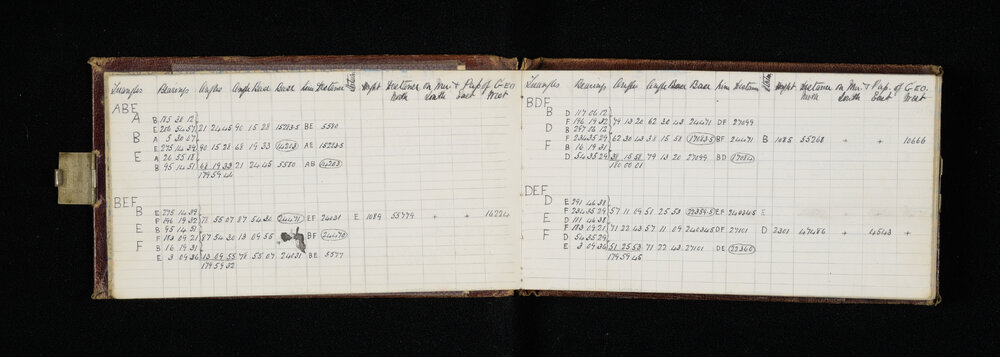 Triangles Bearings Angles Angle Base Base Line Distance Station Height Distance on Mer. & Perp. of G-EO.
North South East West
ABE
A B 185 30 12
E 206 54 57 21 24 45 90 15 28 15213.5 BE 5580
B A 5 30 57
E 275 14 39 90 15 28 68 19 33 14213 AE 15213.5
E A 26 55 18
B 95 14 51 68 19 33 21 24 45 5580 AB 14203
179 59 46
BEF
B E 275 14 39
F 196 19 32 78 55 07 87 54 30 24471 EF 24031 E 1089 55779 + + 16224
E B 95 14 51
F 183 09 21 87 54 30 13 09 55 BF 24470
F B 16 19 31
E 3 09 36 13 09 55 78 55 07 24031 BE 5577
179 59 32
Triangles Bearings Angles Angle Base Base Line Distance Station Height Distance on Mer. & Perp. of G-EO.
North South East West
BDF
B D 117 06 12
F 196 19 32 79 13 20 62 30 43 24471 DF 27099
D B 297 06 12
F 234 35 29 62 30 43 38 15 58 17083.5 BF 24471 B 1085 55268 + + 10666
F B 16 19 31
D 54 35 29 38 15 58 79 13 20 27099 BD 17084
180 00 01
DEF
D E 291 46 38
F 234 35 29 57 11 09 51 25 53 22359.5 EF 24034.5 E
E D 111 46 38
F 183 09 21 71 22 43 57 11 09 24034.5 DF 27101 D 2301 47486 + 4543 +
F D 54 35 29
E 3 09 36 51 25 53 71 22 43 27101 DE 22360
179 59 45